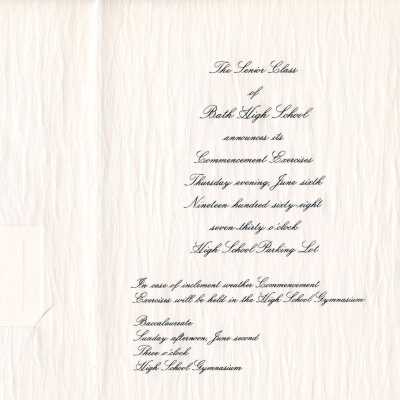 The Senior Class
of
Bath High School
announces its
Commencement Exercises
Thursday evening, June sixth
Nineteen hundred sixty-eight
seven-thirty o'clock
High School Parking Lot
In case of inclement weather Commencement
Exercises will be held in the High School Gymnasium
Baccalaureate
Sunday afternoon, June second
Three o'clock
High School Gymnasium